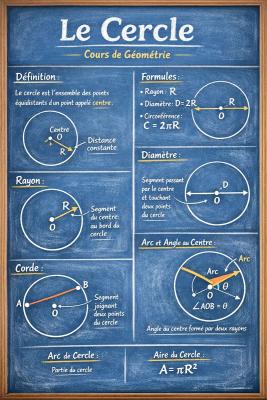 Le Cercle
Cours de Géométrie
Définition :
Le cercle est l'ensemble des points
équidistants d'un point appelé centre.
Centre
O
R
Distance
constante
Rayon :
R
O
Segment
du centre
au bord du
cercle
Corde :
A
B
O
Segment
joignant
deux points
du cercle
Formules :
• Rayon : R
• Diamètre: D=2R
• Circonférence:
C = 2πR
R
O
Diamètre :
Segment passant
par le centre
et touchant
deux points
du cercle
D
O
Arc et Angle au Centre :
Arc
Arc
θ
O
∠AOB = θ
Angle au centre formé par deux rayons
Arc de Cercle :
Partie du cercle
Aire du Cercle :
A = πR²